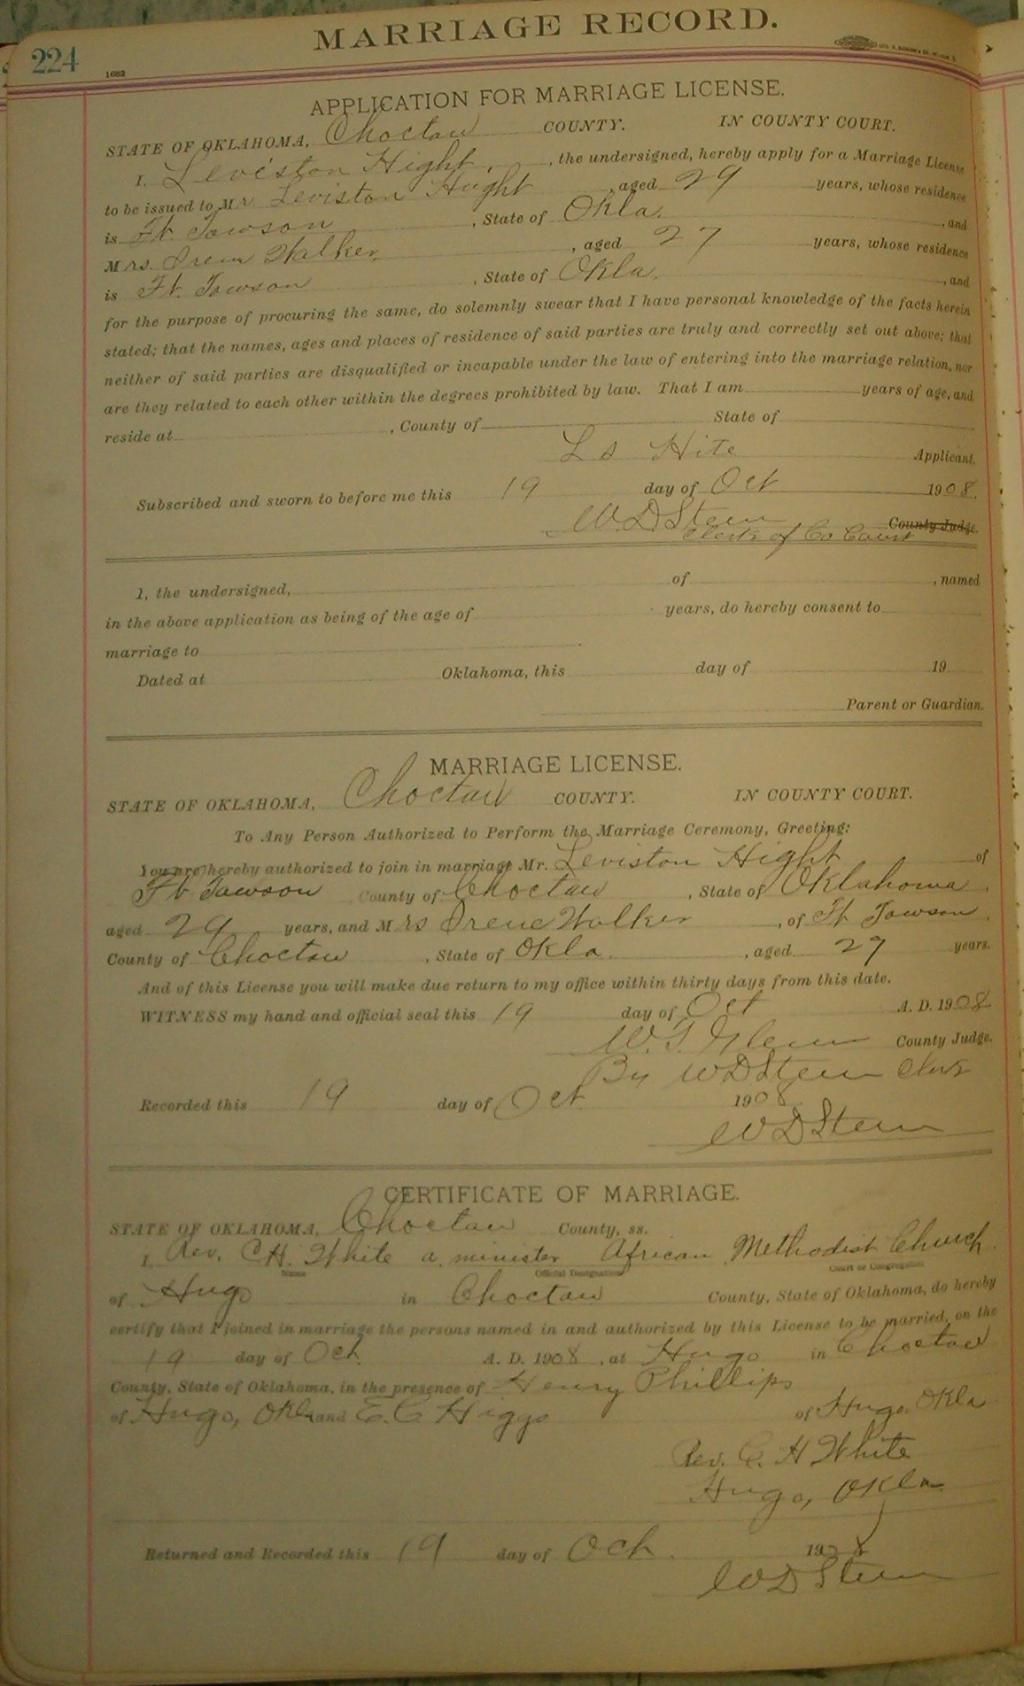 224
1682
MARRIAGE RECORD.
APPLICATION FOR MARRIAGE LICENSE.
STATE OF OKLAHOMA, Choctaw COUNTY. IN COUNTY COURT.
I, Leviston Hight, the undersigned, hereby apply for a Marriage License
to be issued to Mr. Leviston Hight, aged 29 years, whose residence
is Ft. Towson, State of Okla., and
Mrs. Irene Walker, aged 27 years, whose residence
is Ft. Towson, State of Okla., and
for the purpose of procuring the same, do solemnly swear that I have personal knowledge of the facts herein
stated; that the names, ages and places of residence of said parties are truly and correctly set out above; that
neither of said parties are disqualified or incapable under the law of entering into the marriage relation, nor
are they related to each other within the degrees prohibited by law. That I am years of age, and
reside at , County of State of
L S Hite Applicant.
Subscribed and sworn to before me this 19 day of Oct 1908.
W. D Stein County Judge.
Clerk of Co Court
I, the undersigned, of , named
in the above application as being of the age of years, do hereby consent to
marriage to
Dated at Oklahoma, this day of 19
Parent or Guardian.
MARRIAGE LICENSE.
STATE OF OKLAHOMA, Choctaw COUNTY. IN COUNTY COURT.
To Any Person Authorized to Perform the Marriage Ceremony, Greeting:
You are hereby authorized to join in marriage Mr. Leviston Hight of
Ft Towson County of Choctaw, State of Oklahoma,
aged 29 years, and Mrs Irene Walker, of Ft Towson
County of Choctaw, State of Okla., aged 27 years.
And of this License you will make due return to my office within thirty days from this date.
WITNESS my hand and official seal this 19 day of Oct A. D. 1908
W. T. Glenn County Judge.
By W D Stein Clerk
Recorded this 19 day of Oct 1908
W D Stein
CERTIFICATE OF MARRIAGE.
STATE OF OKLAHOMA, Choctaw County, ss.
I, Rev. C H. White a minister African Methodist Church
Name Official Designation Court or Congregation
of Hugo in Choctaw County, State of Oklahoma, do hereby
certify that I joined in marriage the persons named in and authorized by this License to be married, on the
19 day of Oct A. D. 1908, at Hugo in Choctaw
County, State of Oklahoma, in the presence of Henry Phillips
of Hugo, Okla and E. C Higgs of Hugo Okla
Rev. C. H White
Hugo, Okla
Returned and Recorded this 19 day of Oct. 1908
W D Stein